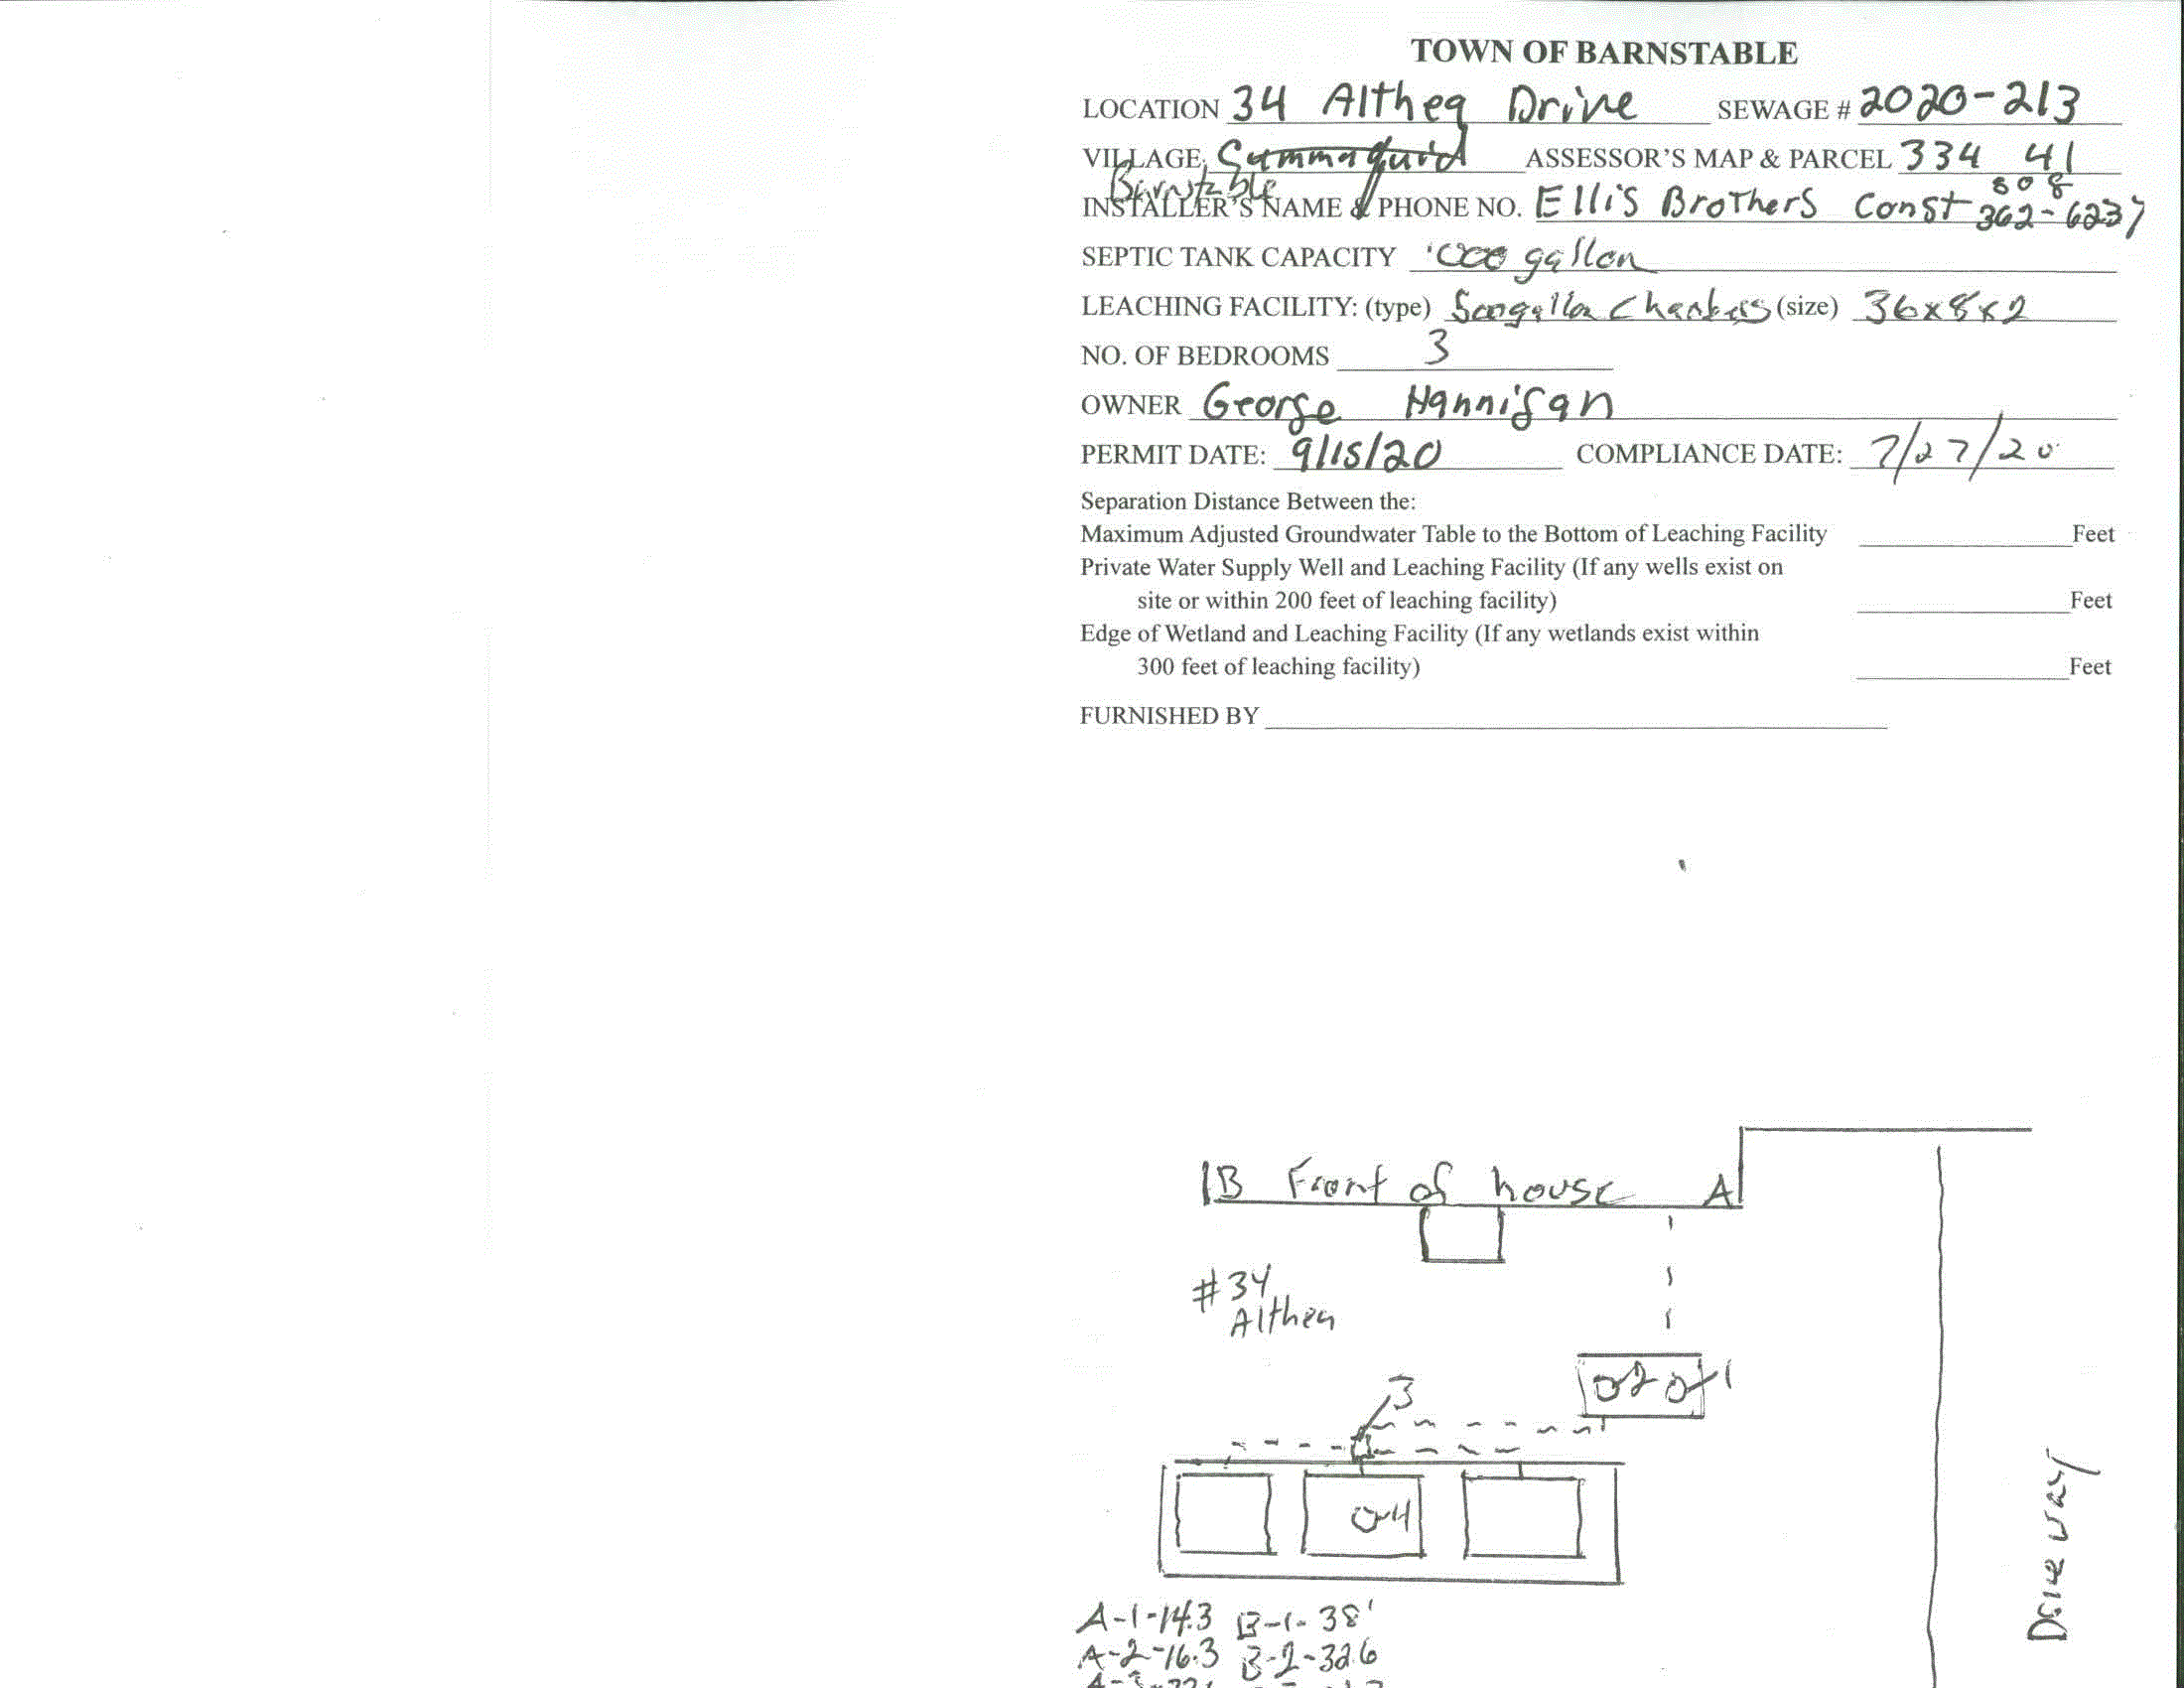 TOWN OF BARNSTABLE
LOCATION 34 Althea Drive SEWAGE # 2020-213
VILLAGE Cummaquid ASSESSOR'S MAP & PARCEL 334 41
Barnstable
508
INSTALLER'S NAME & PHONE NO. Ellis Brothers Const 362-6237
SEPTIC TANK CAPACITY 1000 gallon
LEACHING FACILITY: (type) 500 gallon Chambers (size) 36x8x2
NO. OF BEDROOMS 3
OWNER George Hannigan
PERMIT DATE: 9/15/20 COMPLIANCE DATE: 7/27/20
Separation Distance Between the:
Maximum Adjusted Groundwater Table to the Bottom of Leaching Facility Feet
Private Water Supply Well and Leaching Facility (If any wells exist on
site or within 200 feet of leaching facility) Feet
Edge of Wetland and Leaching Facility (If any wetlands exist within
300 feet of leaching facility) Feet
FURNISHED BY
B Front of house A
#34
Althea
2 1
3
4
Driveway
A-1-14.3 B-1-38'
A-2-16.3 B-2-32.6